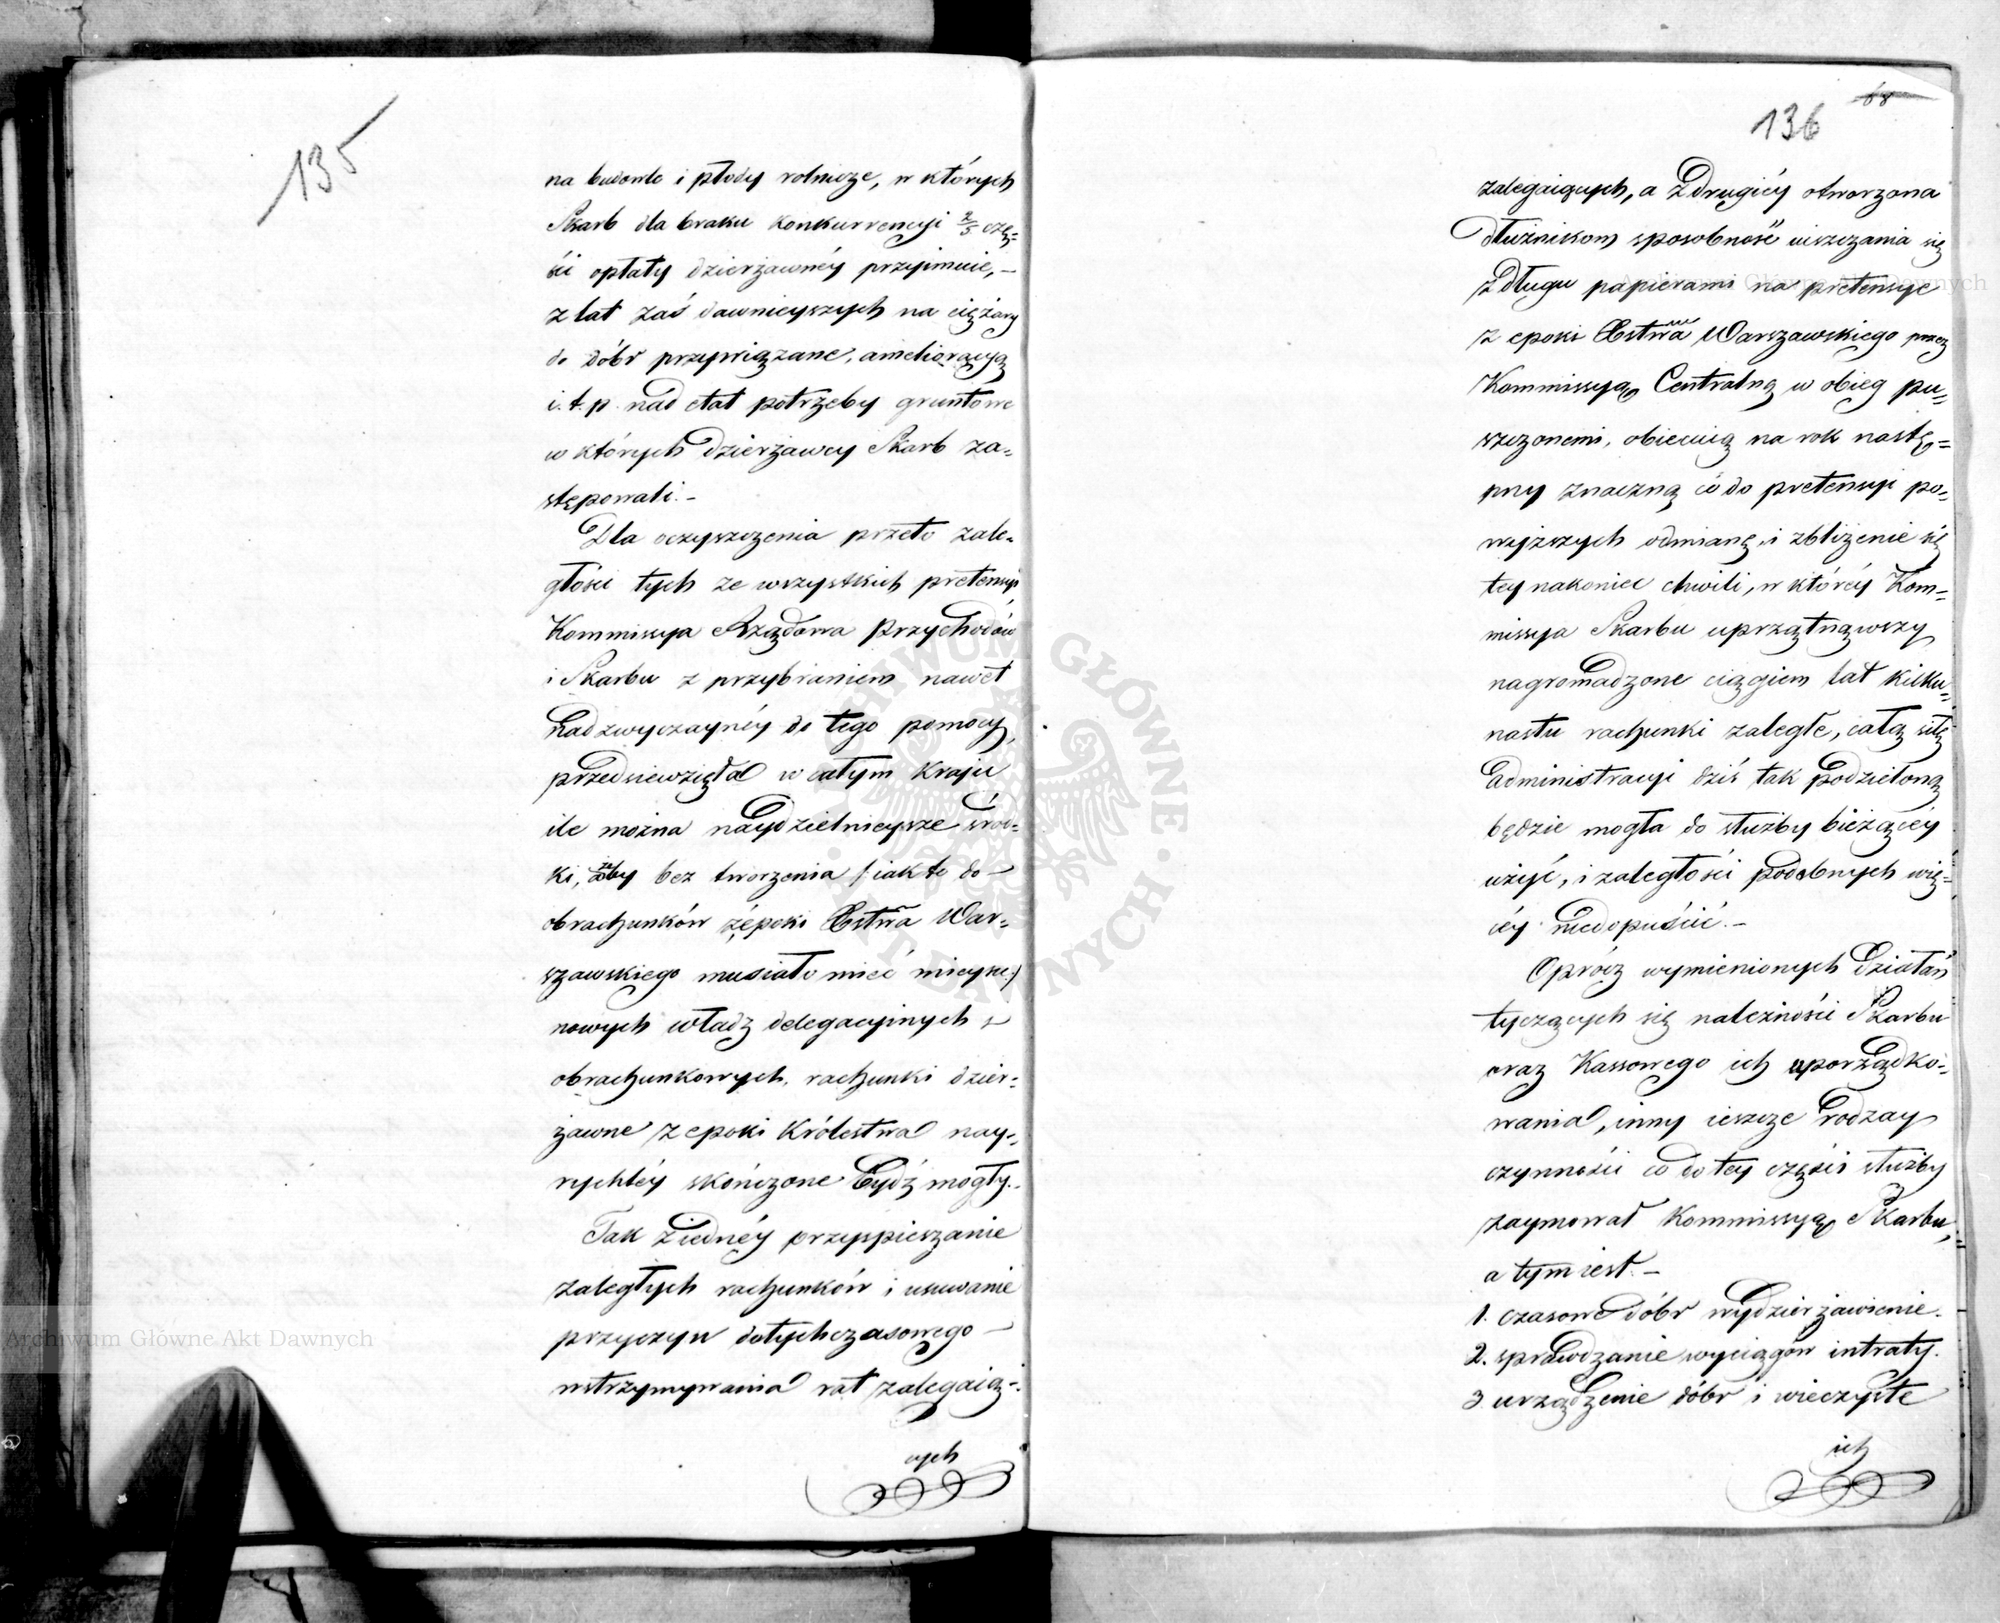 135
na budowle i płody rolnicze, w których
Skarb dla braku konkurrencyi 2/5 czę=
ści opłaty dzierżawnéy przyimuie, –
z lat zaś dawnieyszych na ciężary
do dóbr przywiązane, amelioracyą
i. t. p. nad etat potrzeby gruntowe
w których dzierżawcy Skarb za=
stępowali. –
Dla oczyszczenia przeto zale=
głości tych ze wszystkich pretensyi
Kommissya Rządowa Przychodów
i Skarbu z przybraniem nawet
Nadzwyczaynéy do tego pomocy,
przedsiewzięła w całym Kraju
ile można naydzielnieysze środ=
ki, żeby bez tworzenia /: iak to do –
obrachunków z epoki Xstwa War=
szawskiego musiało mieć mieysce :/
nowych władz delegacyinych i
obrachunkowych, rachunki dzier=
żawne z epoki Królestwa nay=
rychléy skończone bydź mogły. –
Tak z iednéy przyspieszanie
zaległych rachunków i usuwanie
przyczyn dotychczasowego –
wstrzymywania rat zalegaią=
cych
68
136
zalegaiących, a z drugiéy otworzona
dłużnikom sposobność uiszczania się
z długu papierami na pretensye
z epoki Xstwa Warszawskiego przez
Kommissyą Centralną w obieg pu=
szczonemi, obiecuią na rok nastę=
pny znaczną co do pretensyi po=
wyższych odmianę, i zbliżenie się
tey nakoniec chwili, w któréy Kom=
missya Skarbu uprzątnąwszy
nagromadzone ciągiem lat kilku=
nastu rachunki zaległe, całą siłę
administracyi dziś tak podzieloną
będzie mogła do służby bieżącéy
użyć, i zaległości podobnych wię=
céy niedopuścić. –
Oprócz wymienionych działań
tyczących się należności Skarbu
oraz Kassowego ich uporządko=
wania, inny ieszcze rodzay
czynności co do tey części służby
zaymował Kommissyą Skarbu,
a tym iest. –
1. czasowe dóbr wydzierżawienie.
2. sprawdzanie wyciągów intraty.
3 urządzenie dóbr i wieczyste
ich
Archiwum Główne Akt Dawnych
Archiwum Główne Akt Dawnych
ARCHIWUM GŁÓWNE AKT DAWNYCH